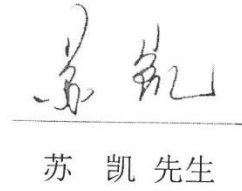 苏凯
苏 凯 先生